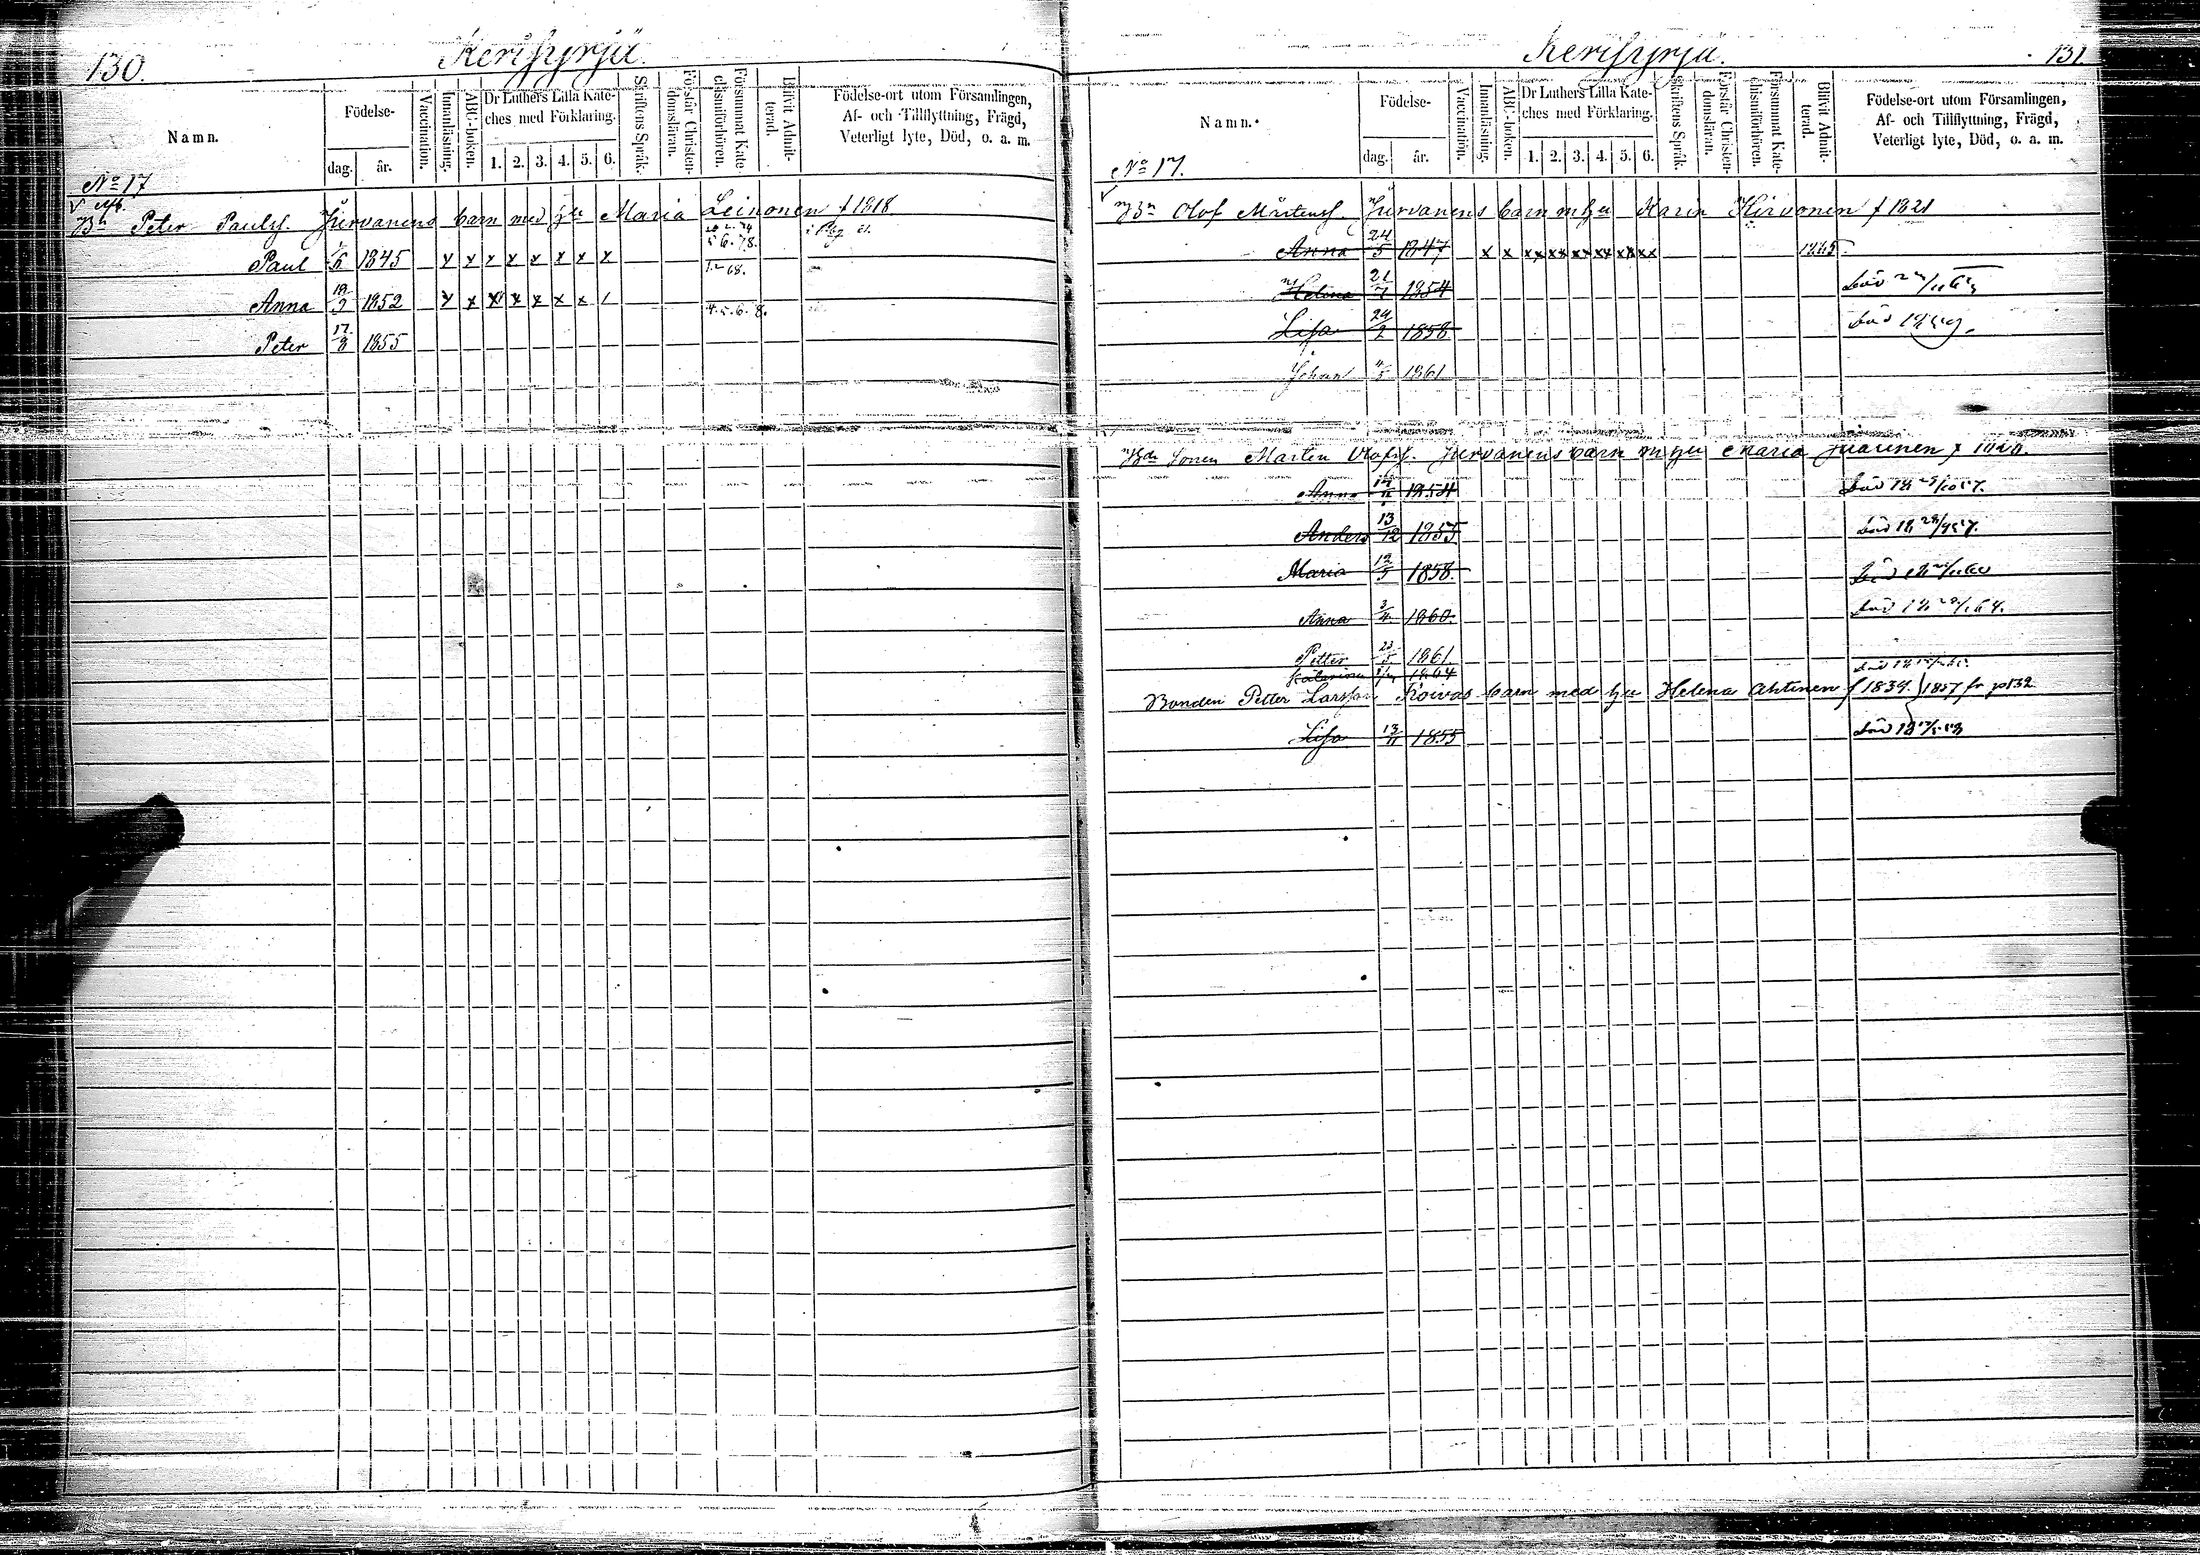 130.
Kerisyrjä.
Namn.
Födelse-
dag.
år.
Vaccination.
Innanläsning.
ABC-boken.
Dr Luthers Lilla Kate-
ches med Förklaring.
1. 2. 3. 4. 5. 6.
Skriftens Språk.
Förstår Christen-
domsläran.
Försummat Kate-
chismiförhören.
Blifvit Admit-
terad.
Födelse-ort utom Församlingen,
Af- och Tillflyttning, Frägd,
Veterligt lyte, Död, o. a. m.
No 17
Bn Peter Paulss. Jurvanens barn med hu Maria Leinonen f 1818
Paul 1845 x x x x x x x x
Anna 1852 x x x x x x x
Peter 17/8 1855
Kerisyrjä.
131
Namn.
Födelse-
dag.
år.
Vaccination.
Innanläsning.
ABC-boken.
Dr Luthers Lilla Kate-
ches med Förklaring.
1. 2. 3. 4. 5. 6.
Skriftens Språk.
Förstår Christen-
domsläran.
Försummat Kate-
chismiförhören.
Blifvit Admit-
terad.
Födelse-ort utom Församlingen,
Af- och Tillflyttning, Frägd,
Veterligt lyte, Död, o. a. m.
No 17.
Bn Olof Mårtenss. Jurvanens barn m hu Karin Hirvonen f 1821
Anna 24/5 1847 x x xx xx xx xx xx xx 1865.
Helena 21/7 1854 död
Lisa 24/2 1858 död
Johan 1861
Bde Sonen Martin Olofss. Jurvanens barn m hu Maria
Anna 1854 död
Anders 13/12 1855 död
Maria 12/5 1858. död
Anna 3/4 1860. död
Petter 1861
Katarina 1864 död
Bonden Petter Larsson Koivas barn med hu Helena Ahtinen f 1839. 1857 fr p 132
Lisa 13/11 1855 död